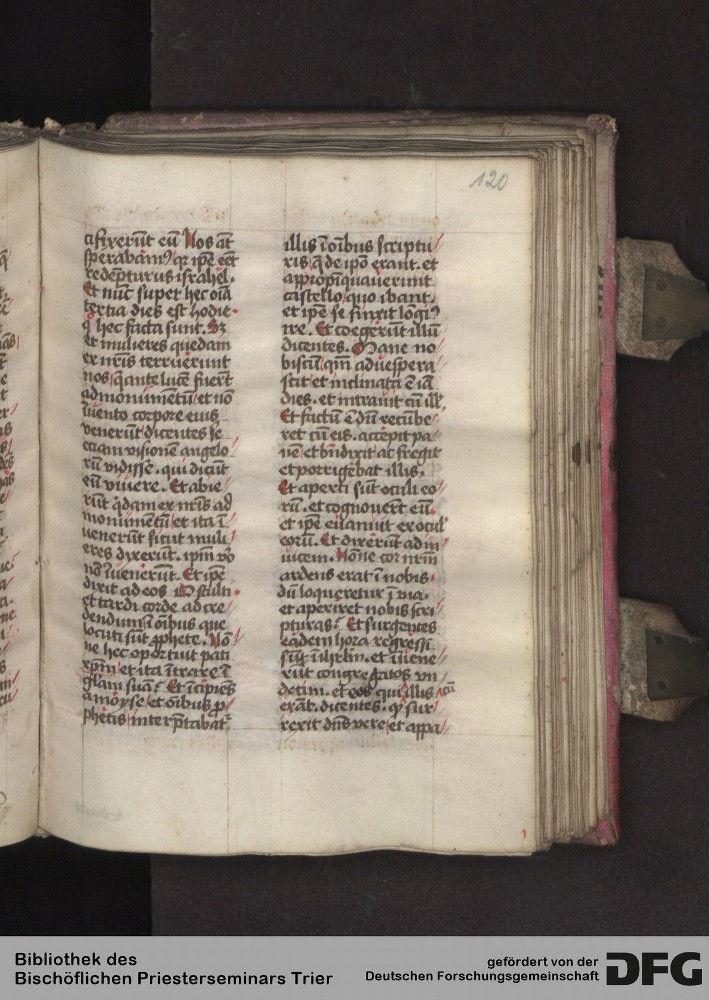 120
cifixerūt eū Nos at̄
sperabamꝰ qꝛ ip̄e eēt
redēpturus israhel.
Et nūc super hec oīa
tertia dies est hodie
qͥ hec facta sunt. Sꝫ
et mulieres quedam
ex nr̄is terruerunt
nos q̄ ante lucē fuerūt
ad monumētū et nō
īuento corpore eius
venerūt dicentes se
eciam visionē angelo
rū vidisse. qui dicūt
eū viuere. Et abie
rūt qͥdam ex nr̄is ad
monumētū et ita ī
uenerūt sicut muli
eres dixerūt. ipm̄ vͦo
nō īuenerūt. Et ip̄e
dixit ad eos O stulti
et tardi corde ad cre
dendum ī oībus que
locuti sūt ꝓphete. Nō
ne hec oportuit pati
xpm̄ et ita ītrare ī
gl̄iam suā? Et īcipiēs
a moyse et oībus ꝓ
phetis interp̄tabat᷑
illis ī oībus scriptu
ris q̄ de ipō erant. et
appropīquauerunt
castello quo ibant.
et ip̄e se finxit lōgiꝰ
ire. Et coegerūt illū
dicentes. Mane no
biscū qm̄ aduespera
scit et inclinata ē iā
dies. et intrauit cū ill̄.
Et factū ē dū recūbe
ret cū eis. accepit pa
nē et bn̄dixit ac fregit
et porrigebat illis.
Et aperti sūt oculi eo
rū. et cognouerūt eū.
et ip̄e euanuit ex ocul̄
eorū. Et dixerūt ad in
uicem. Nōne cor nr̄m
ardens erat ī nobis
dū loqueretur ī via.
et aperiret nobis scri
pturas? Et surgentes
eadem hora regressi
sūt ī ihrlm̄. et īuene
rūt congregatos vn
decim. et eos qui cū illis
erāt. dicentes. qꝫ sur
rexit dn̄s vere et appa
Bibliothek des
Bischöflichen Priesterseminars Trier
gefördert von der
Deutschen Forschungsgemeinschaft
DFG